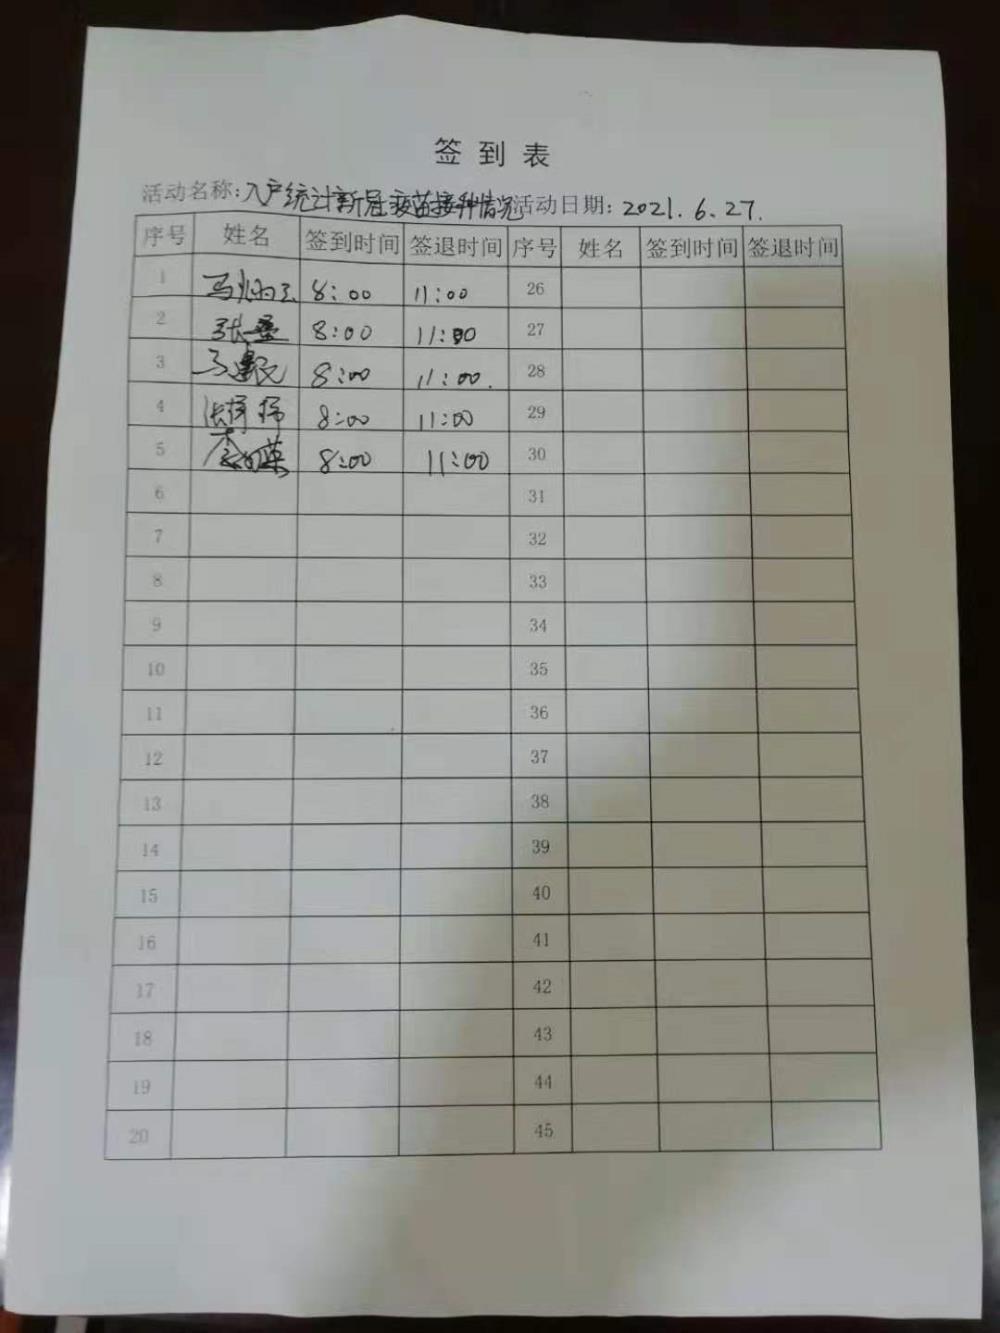 签到表
活动名称:入户统计新冠疫苗接种情况活动日期:2021.6.27.
序号 姓名 签到时间 签退时间 序号 姓名 签到时间 签退时间
1 8:00 11:00 26
2 8:00 11:00 27
3 8:00 11:00. 28
4 8:00 11:00 29
5 8:00 11:00 30
6 31
7 32
8 33
9 34
10 35
11 36
12 37
13 38
14 39
15 40
16 41
17 42
18 43
19 44
20 45